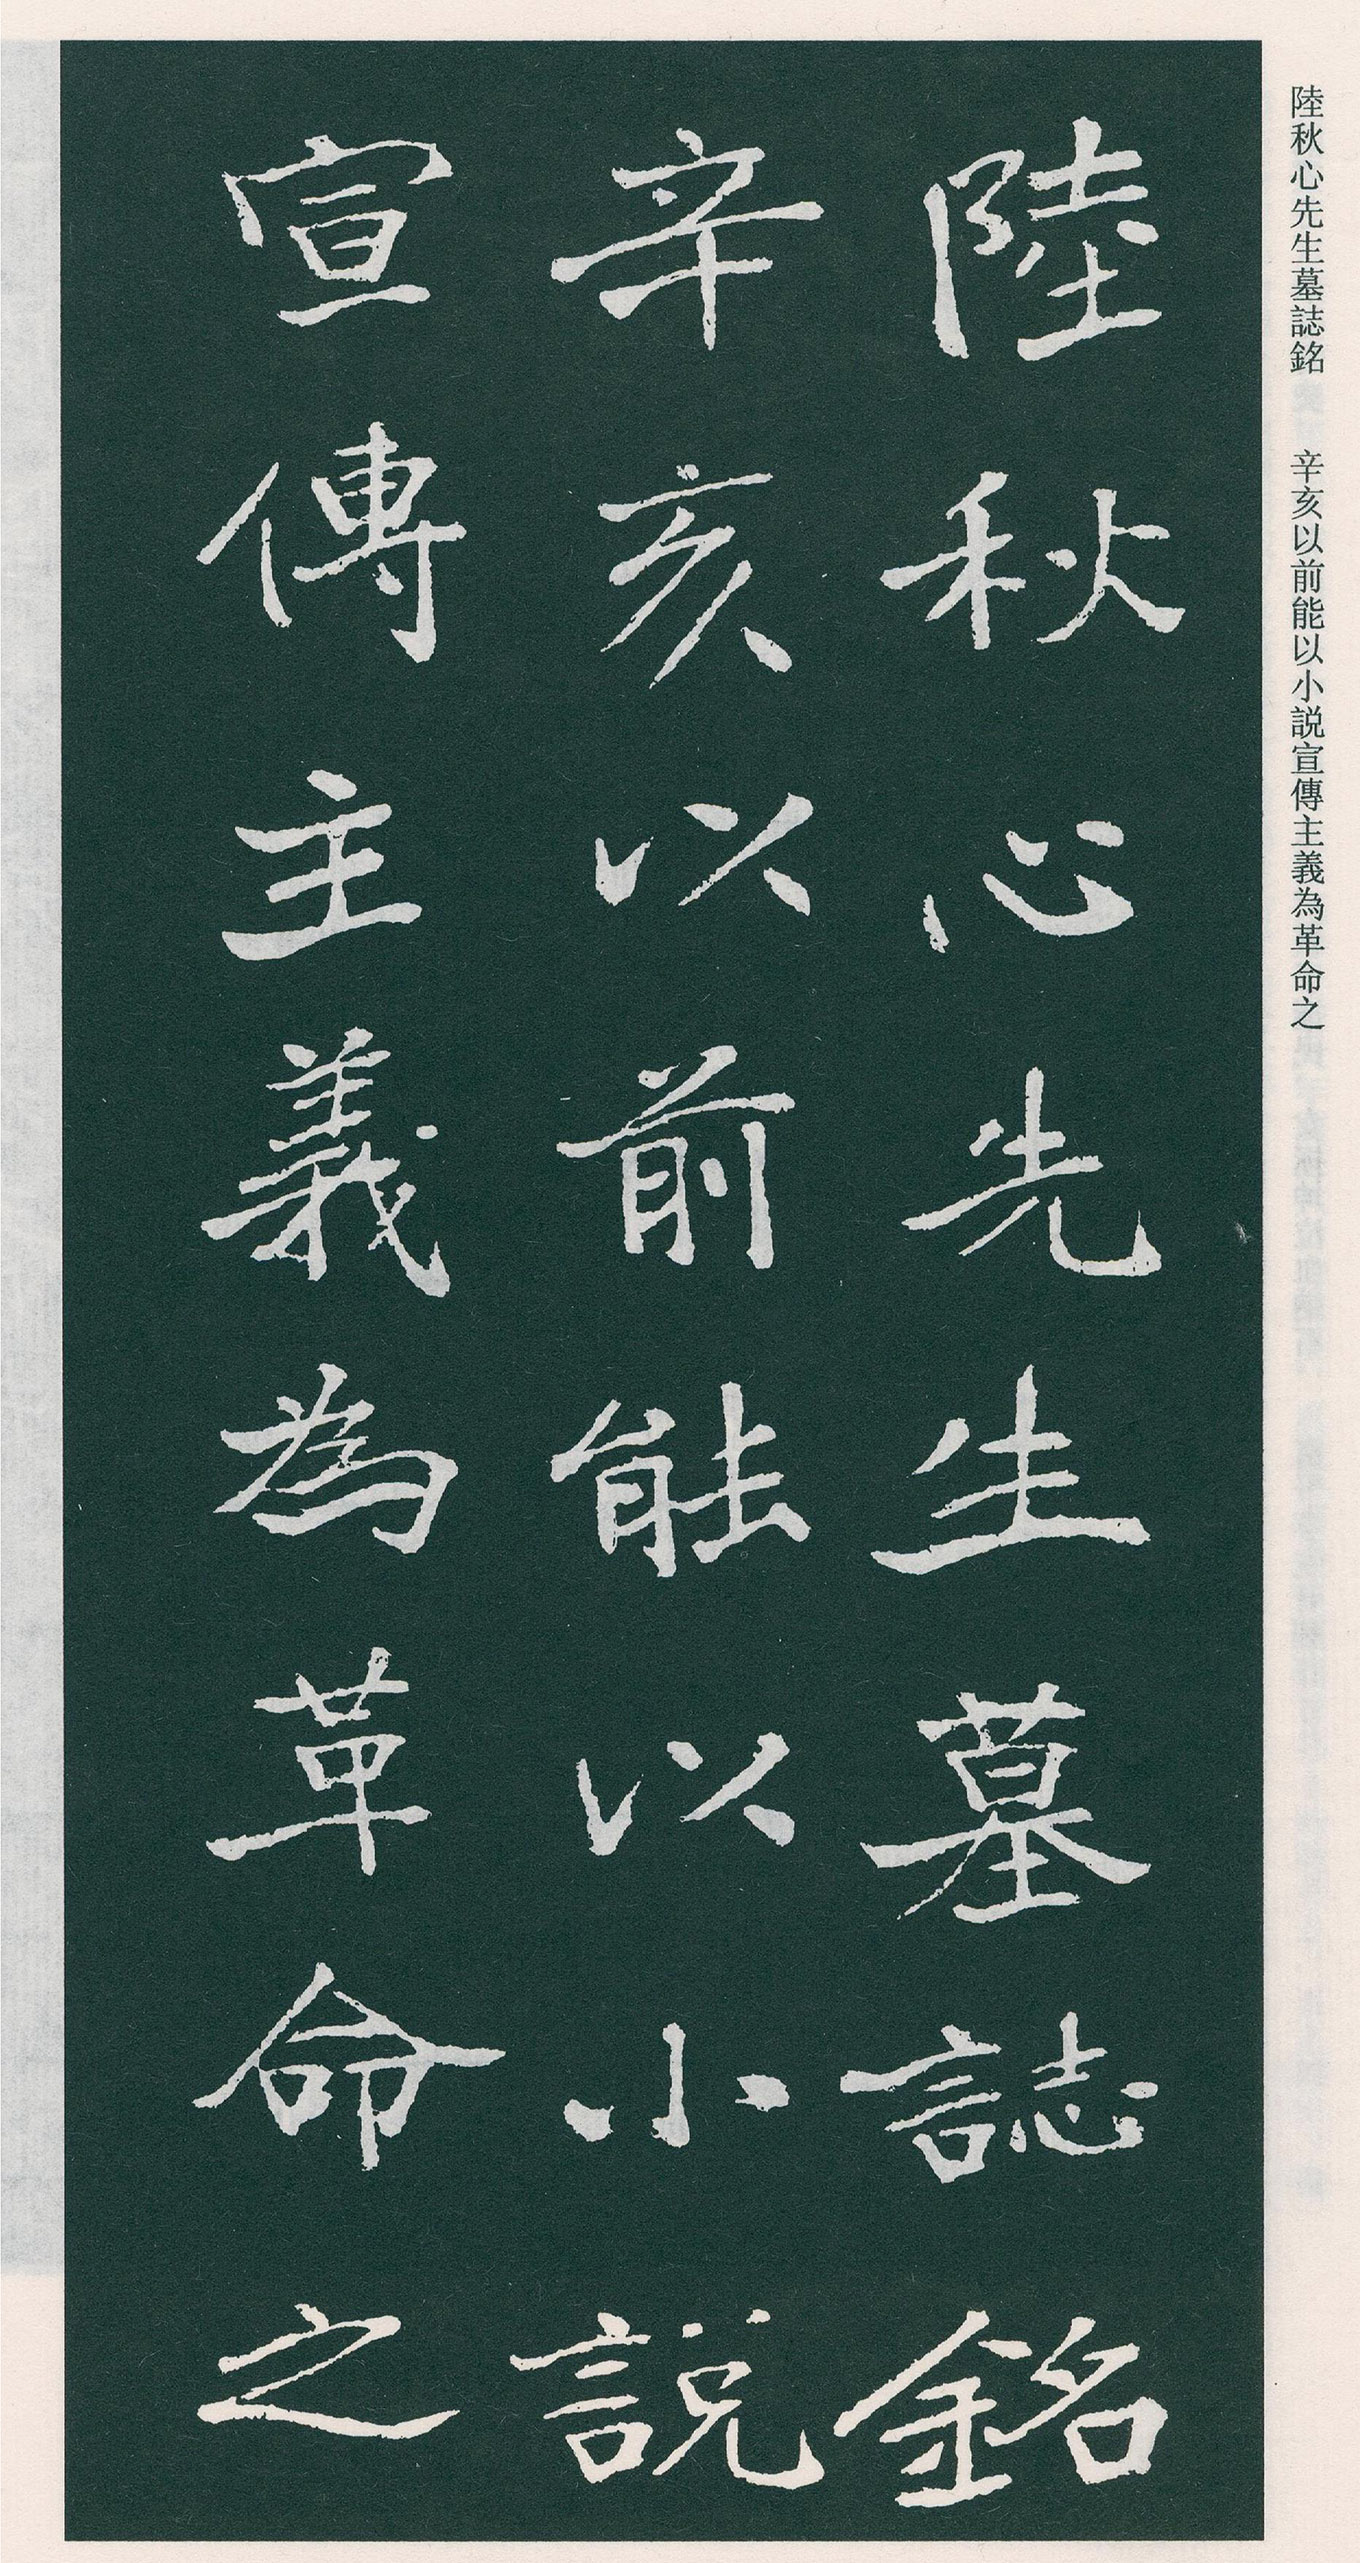 陸秋心先生墓誌銘 辛亥以前能以小説宣傳主義為革命之
陸秋心先生墓誌銘
辛亥以前能以小説
宣傳主義為革命之